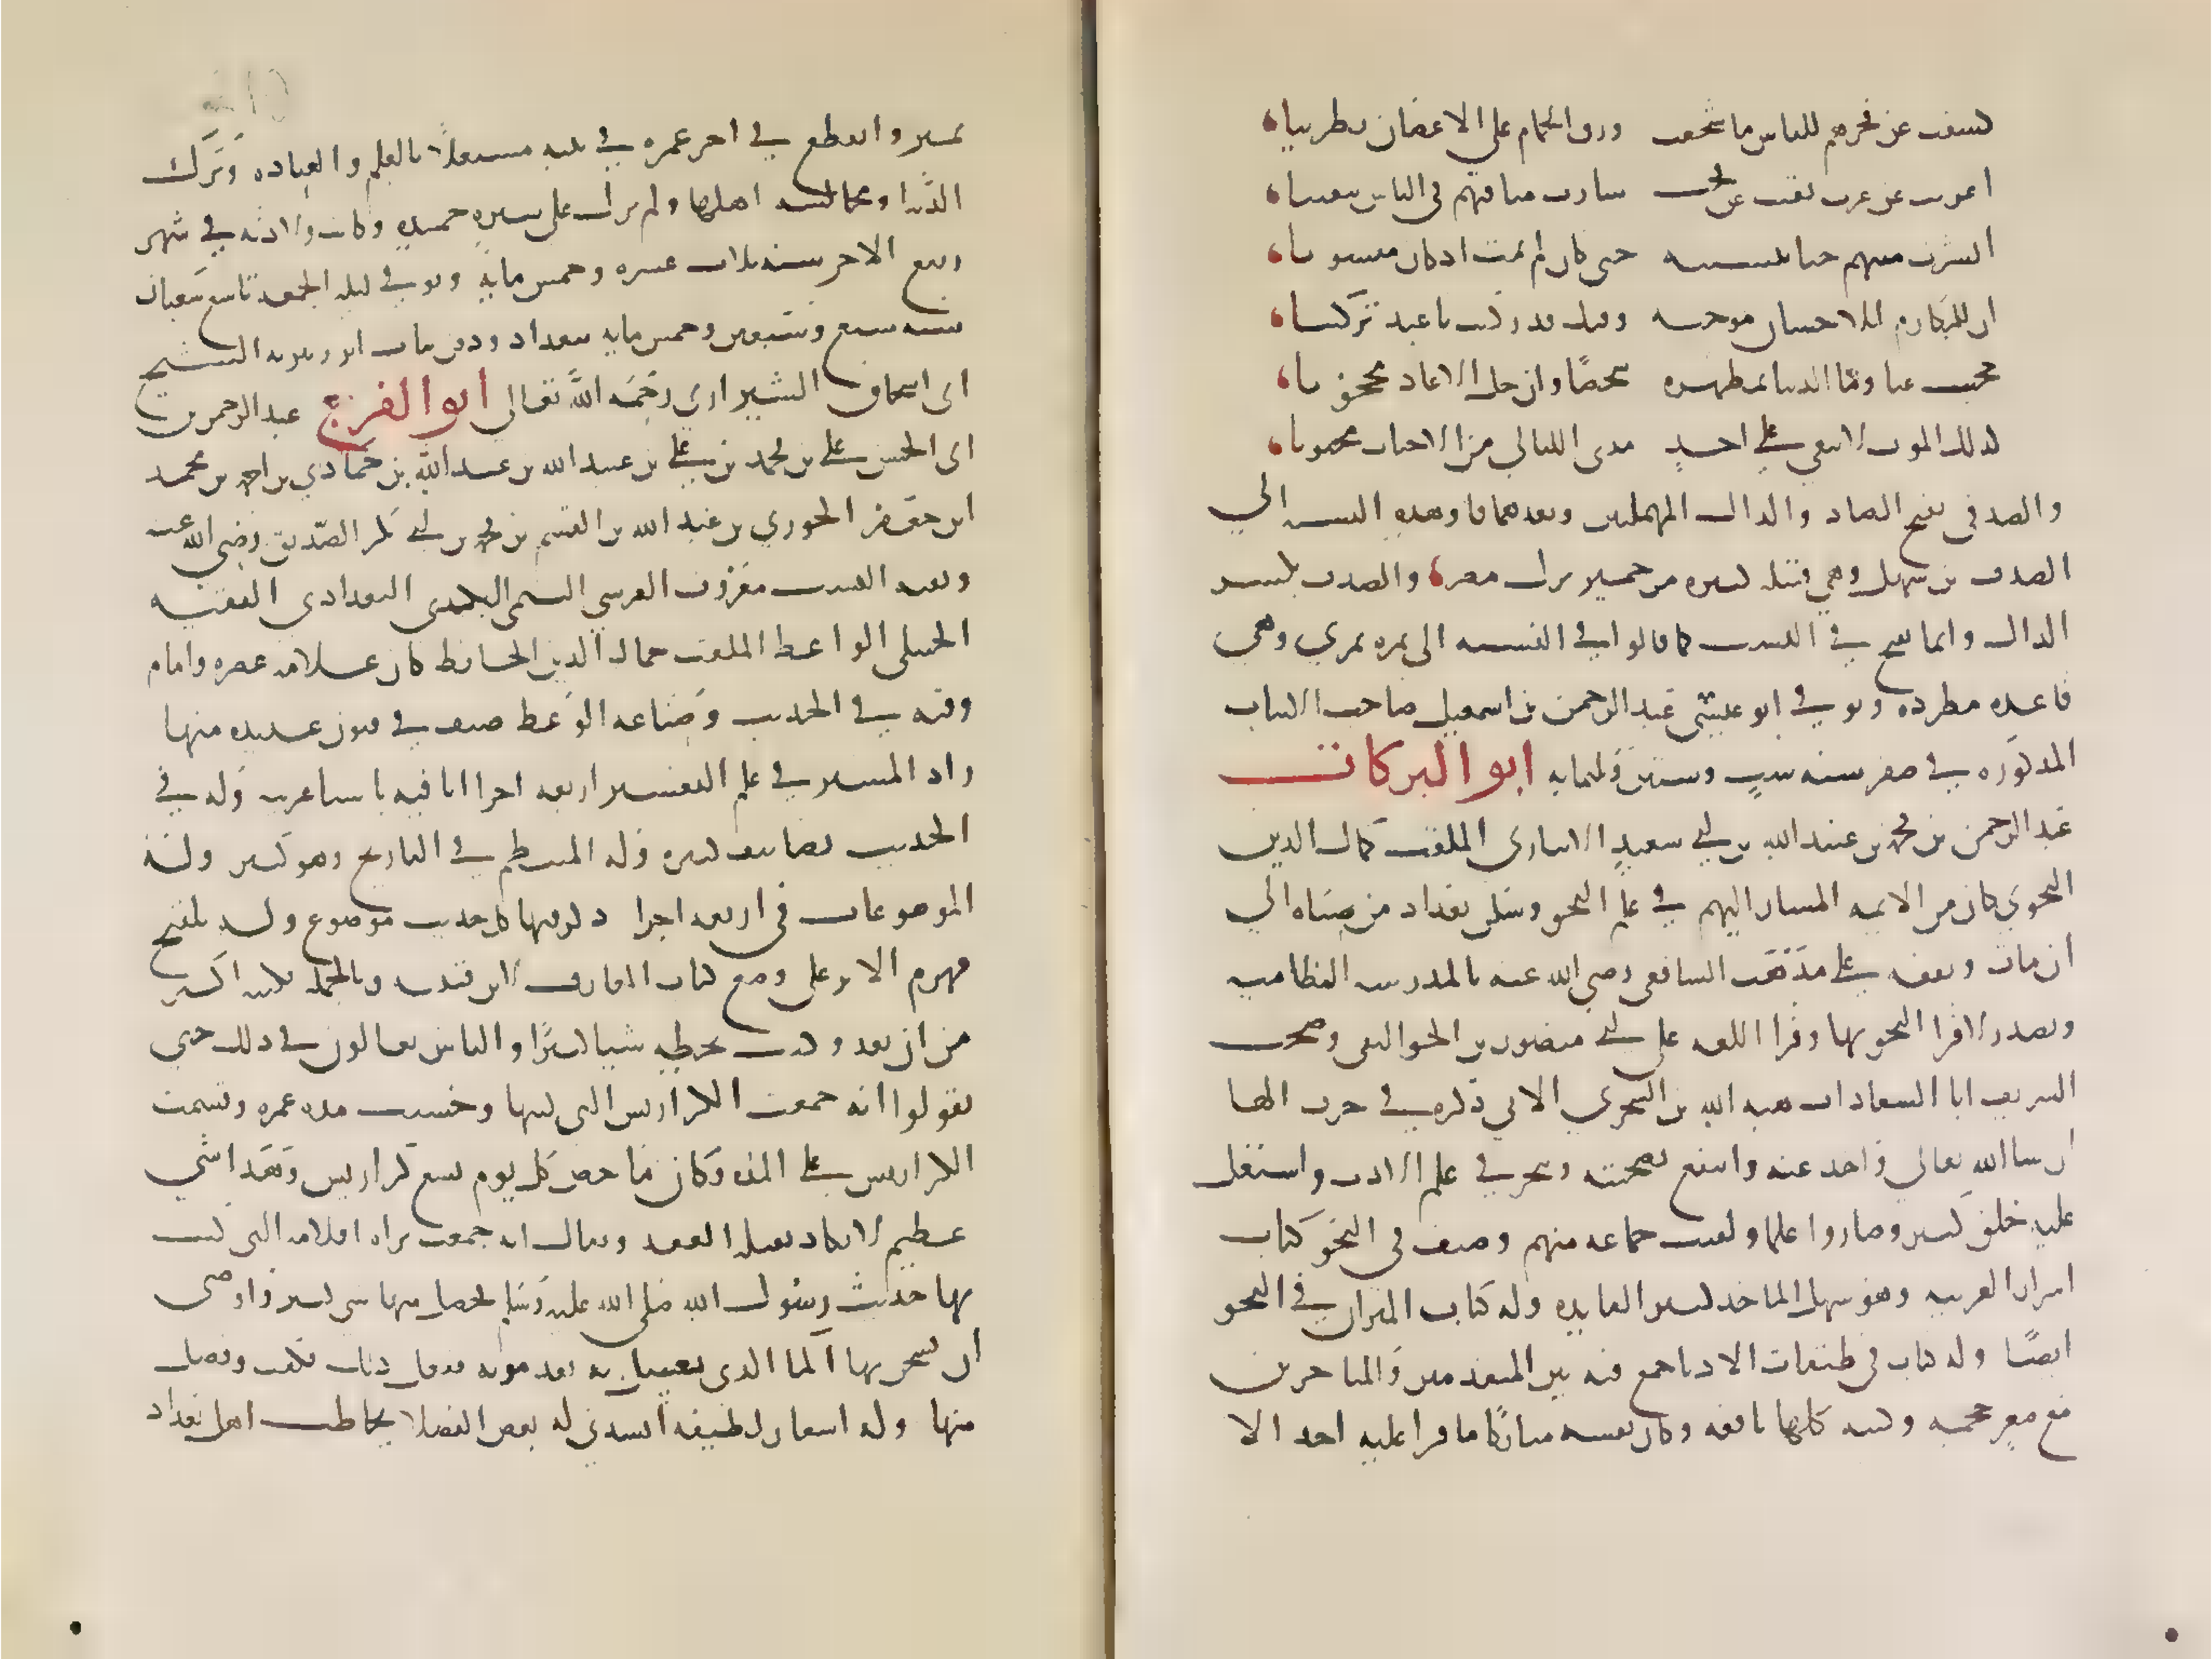 كشفت عن فخرهم للناس ما سجعت ورق الحمام على الاغصان تطريبا
اعربت عن عرب نقبت عن نجب سارت مناقبهم في الناس تنقيبا
انشرت ميتهم حيا بنسبته حتى كان لم يمت اذ كان منسوبا
ان المكارم للاحسان موجبة وفيك قد ركبت يا عبد تركيبا
حجبت عنا وما الدنيا بمظهرة شخصا وان جل الا عاد محجوبا
كذلك الموت لا يبقي على احد مدى الليالي من الاحباب محبوبا
والصدفي بفتح الصاد والدال المهملتين وبعدهما فا وهذه النسبه الى
الصدف بن سهل وهي قبيله كبيره من حمير نزلت مصر والصدف بكسر
الدال وانما تفتح في النسب كما قالوا في النسبه الى نمره نمري وهي
قاعده مطرده وتوفي ابو عيسى عبد الرحمن بن اسمعيل صاحب الابيات
المذكوره في صفر سنه ست وستين وثلثمايه ابو البركات
عبد الرحمن بن محمد بن عبيد الله بن ابي سعيد الانباري الملقب كمال الدين
النحوي كان من الايمه المشار اليهم في علم النحو وسكن بغداد من صباه الى
ان مات وتفقه على مذهب الشافعي رضي الله عنه بالمدرسه النظاميه
وتصدر لاقرا النحو بها وقرا اللغه على ابي منصور بن الجواليقي وصحب
الشريف ابا السعادات هبه الله بن الشجري الاتي ذكره في حرف الها
ان شا الله تعالى واخذ عنه وانتفع بصحبته وتبحر في علم الادب واشتغل
عليه خلق كثير وصاروا علما ولقيت جماعه منهم وصنف في النحو كتاب
اسرار العربيه وهو سهل الماخذ كثير الفايده وله كتاب الميزان في النحو
ايضا وله كتاب في طبقات الادبا جمع فيه بين المتقدمين والمتاخرين
مع صغر حجمه وكتبه كلها نافعه وكان نفسه مباركا ما قرا عليه احد الا
تميز وانقطع في اخر عمره في بيته مشتغلا بالعلم والعباده وترك
الدنيا ومجالسه اهلها ولم يزل على سيره حميده وكانت ولادته في شهر
ربيع الاخر سنه ثلاث عشره وخمس مايه وتوفي ليله الجمعه تاسع شعبان
سنه سبع وسبعين وخمس مايه ببغداد ودفن بباب ابرز بتربه الشيخ
ابي اسحاق الشيرازي رحمه الله تعالى ابو الفرج عبد الرحمن بن
ابي الحسن علي بن محمد بن علي بن عبيد الله بن عبد الله بن حمادي بن احمد بن محمد
ابن جعفر الجوزي بن عبد الله بن القسم بن محمد بن ابي بكر الصديق رضي الله عنه
وبقيه النسب معروف القرشي التيمي البكري البغدادي الفقيه
الحنبلي الواعظ الملقب جمال الدين الحافظ كان علامه عصره وامام
وقته في الحديث وصناعه الوعظ صنف في فنون عديده منها
زاد المسير في علم التفسير اربعه اجزا اتا فيه باشيا غريبه وله في
الحديث تصانيف كثيره وله المنتظم في التاريخ وهو كبير وله
الموضوعات في اربعه اجزا ذكر فيها كل حديث موضوع وله تلقيح
فهوم الاثر على وضع كتاب المعارف لابن قتيبه وبالجمله فكتبه اكثر
من ان تعد وكتب بخطه شيا كثيرا والناس يغالون في ذلك حتى
يقولوا انه جمعت الكراريس التي كتبها وحسبت مده عمره وقسمت
الكراريس على المده وكان ما خص كل يوم تسع كراريس وهذا شي
عظيم لا يكاد يقبله العقد ويقال انه جمعت براه اقلامه التي كتب
بها حديث رسول الله صلى الله عليه وسلم فحصل منها شي كثير واوصى
ان يسخن بها الما الذي يغسل به بعد موته ففعل ذلك فكفت وفضل
منها وله اشعار لطيفه انشدني له بعض الفضلا يخاطب اهل بغداد